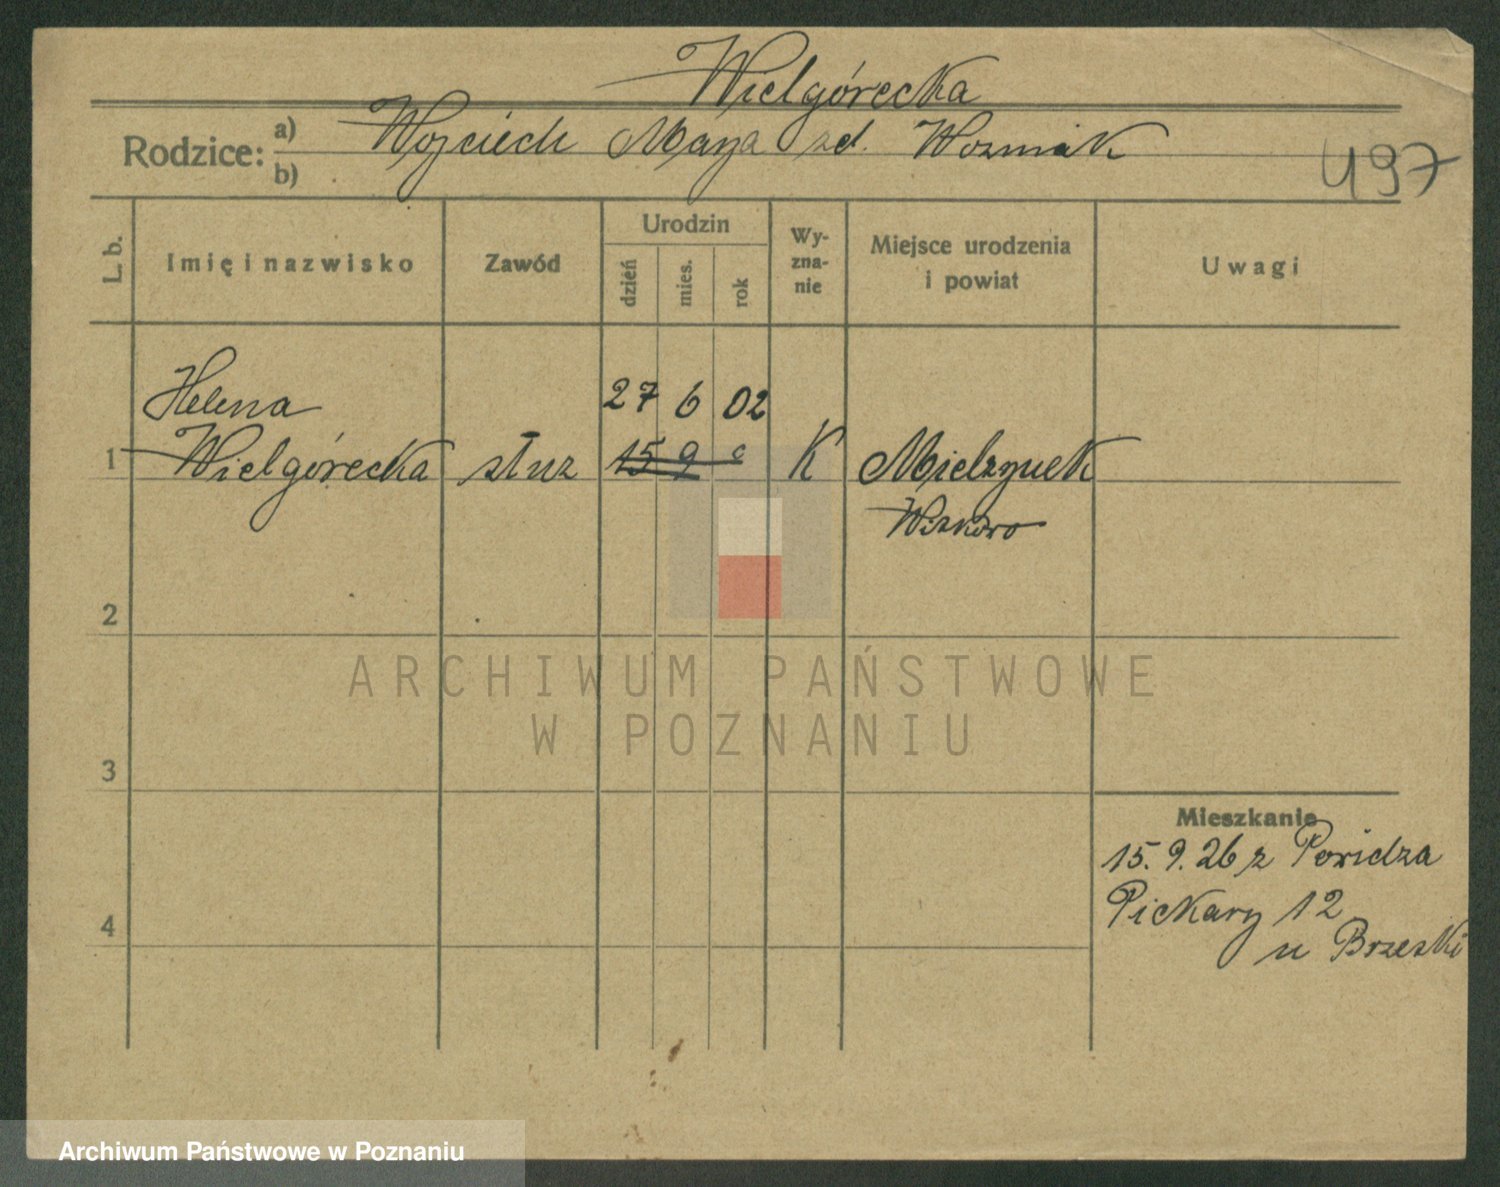 Wielgórecka
Rodzice: a) Wojciech Marya zd. Wozniak
b)
497
L. b.
Imię i nazwisko
Zawód
Urodzin
dzień
mies.
rok
Wy-
zna-
nie
Miejsce urodzenia
i powiat
Uwagi
Helena
27 6 02
1 Wielgórecka służ 15 9 K Mielzynek
Witkowo
2
3
4
Mieszkanie
15. 9. 26 z Powidza
Piekary 12
u Brzeski
ARCHIWUM PAŃSTWOWE
W POZNANIU
Archiwum Państwowe w Poznaniu